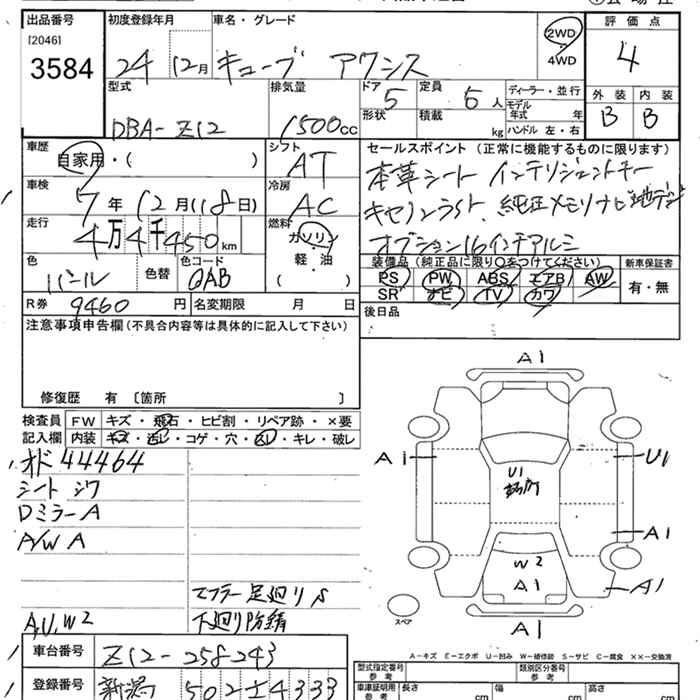 出品番号 初度登録年月 車名・グレード 評価点
[2046] 3584 24 12月 キューブ アクシス 2WD 4WD 4
型式 排気量 ドア 5 定員 5人 ディーラー・並行 外装 内装
DBA-Z12 1500cc 形状 積載 kg モデル年式 年 ハンドル 左・右 B B
車歴 自家用・( ) シフト AT セールスポイント (正常に機能するものに限ります)
車検 7年12月(18日) 冷房 AC 本革シート インテリジェントキー
走行 4万4千450km 燃料 ガソリン 軽・油 ( ) キセノンライト、純正メモリナビ地デジ
オプション16インチアルミ
色 パール 色替 色コード QAB 装備品 (純正品に限り○をつけてください) 新車保証書
PS PW ABS エアB AW 有・無
SR ナビ TV カワ
R券 9460円 名変期限 月 日 後日品
注意事項申告欄(不具合内容等は具体的に記入して下さい)
修復歴 有 〔箇所 〕
検査員 FW キズ・飛石・ヒビ割・リペア跡・×要
記入欄 内装 キズ・汚レ・コゲ・穴・スレ・キレ・破レ
オド 44464
シート シワ
Dミラー A
A/W A
マフラー 足廻り S
A,U,W2 下廻り防錆
車台番号 Z12-258243
登録番号 新潟 502 ± 4333
A1
A1 U1 U1
A1
W2
A1 A1
スペア A1
A-キズ E-エクボ U-凹み W-補修跡 S-サビ C-腐食 ××-交換済
型式指定番号 参考 類別区分番号 参考
車庫証明用 参考 長さ cm 幅 cm 高さ cm